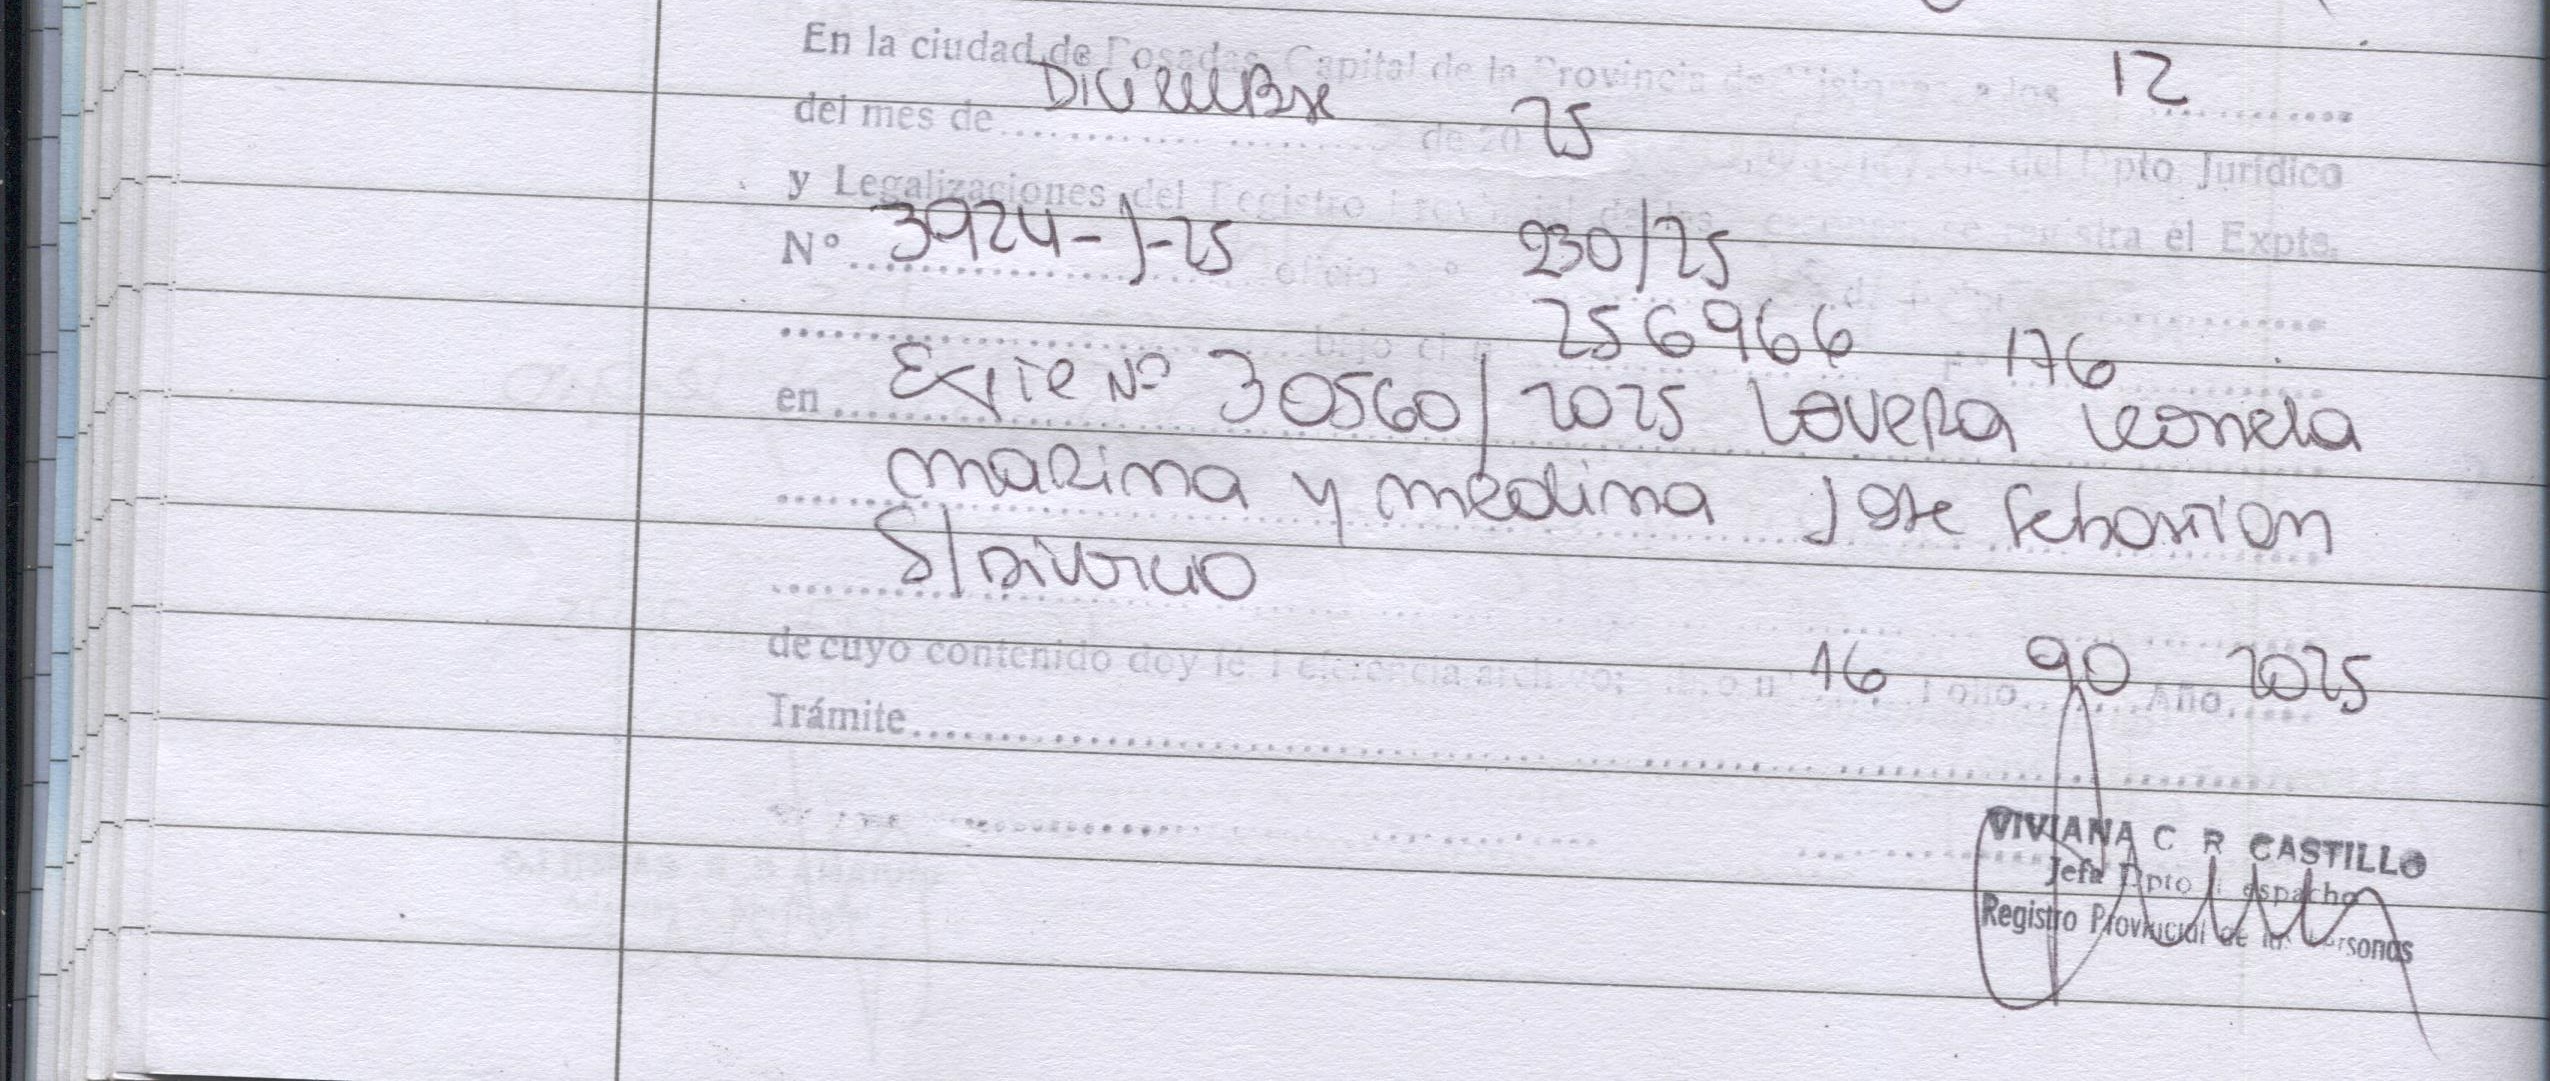 En la ciudad de Posadas, Capital de la Provincia de Misiones a los 12
del mes de Diciembre de 20 25 del Dpto. Jurídico
y Legalizaciones del Registro Provincial de las se registra el Expte.
Nº 3924-J-25 oficio 230/25
bajo el nº 256966 176
en Expte Nº 30560/2025 Lovera Leonela
Marina y Medina Jose Sebastian
S/Divorcio
de cuyo contenido doy fe Referencia archivo; 16 Folio 90 Año 2025
Trámite
VIVIANA C R CASTILLO
Jefa Dpto Despacho
Registro Provincial de las Personas